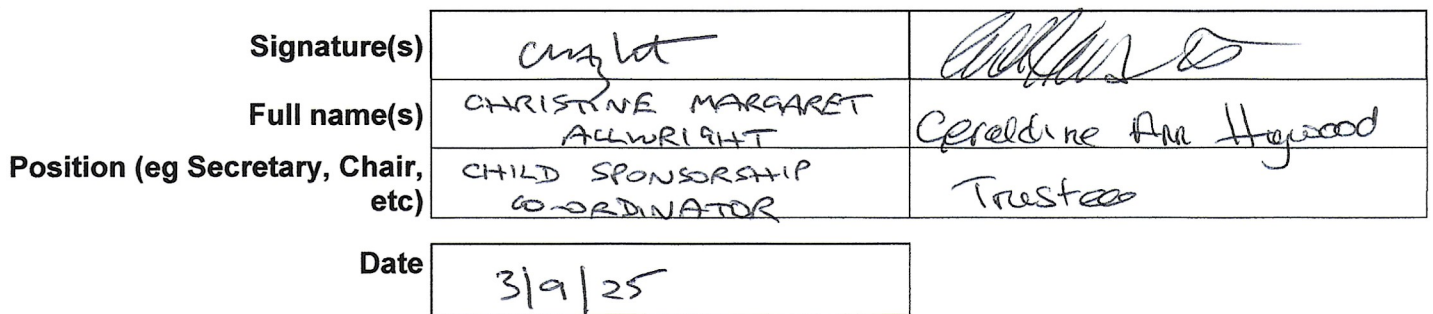 Signature(s)
Full name(s) CHRISTINE MARGARET
ALLWRIGHT Geraldine Ann
Position (eg Secretary, Chair, etc) CHILD SPONSORSHIP
CO-ORDINATOR Trustee
Date 3/9/25